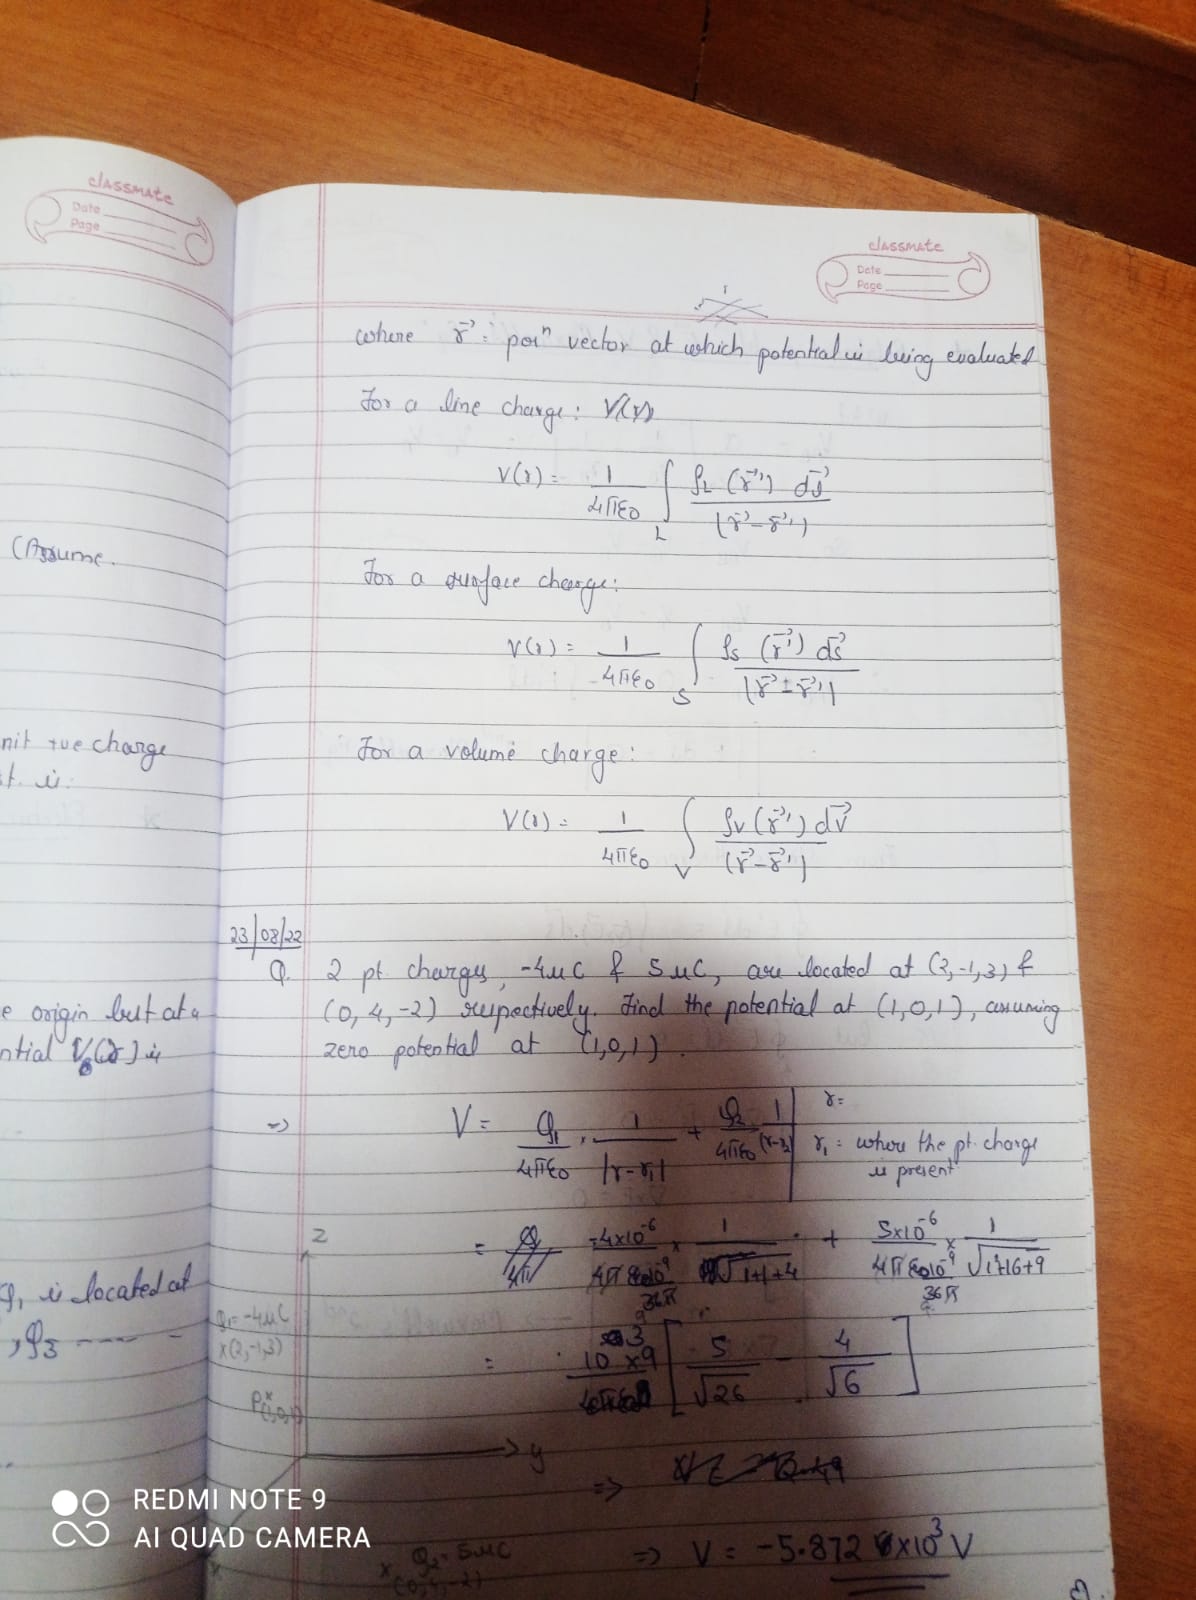 classmate
Date
Page
(Assume.
nit +ve charge
st. is:
e origin but at a
ntial V₀(r) is
Q₁ is located at
, Q₃ ---- -
classmate
Date
Page
where r⃗ : posⁿ vector at which potential is being evaluated
For a line charge: V(r)
V(r) = 1/4πε₀ ∫_L ρ_L (r⃗') dl⃗ / |r⃗ - r⃗'|
For a surface charge:
V(r) = 1/4πε₀ ∫_S ρs (r⃗') ds⃗ / |r⃗ - r⃗'|
For a volume charge:
V(r) = 1/4πε₀ ∫_V ρv (r⃗') dv⃗ / |r⃗ - r⃗'|
23/08/22
Q. 2 pt. charges, -4μC & 5μC, are located at (2,-1,3) &
(0, 4, -2) respectively. Find the potential at (1,0,1), assuming
zero potential at (1,0,1).
=> V = Q₁/4πε₀ × 1/|r-r₁| + Q₂/4πε₀ 1/(r-r₂)
r=
r₁ = where the pt. charge
is present
= -4×10⁻⁶/4π 10⁻⁹/36π × 1/√1+1+4 + 5×10⁻⁶/4π 10⁻⁹/36π × 1/√1+16+9
= 10³ ×9 [ 5/√26 - 4/√6 ]
z
Q₁=-4μC
×(2,-1,3)
P(1,0,1)
y
=>
× Q₂=5μC
(0,4,-2)
=> V = -5.872 ×10³ V
REDMI NOTE 9
AI QUAD CAMERA